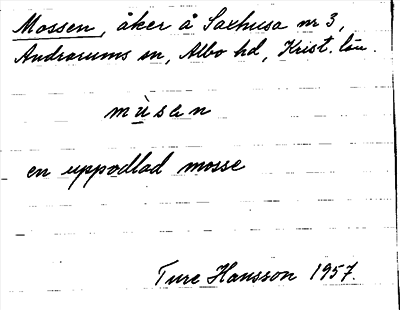 Mossen, åker å Saxhusa nr 3,
Andrarums sn, Albo hd, Krist. län.
mùsen
en uppodlad mosse
Ture Hansson 1957.